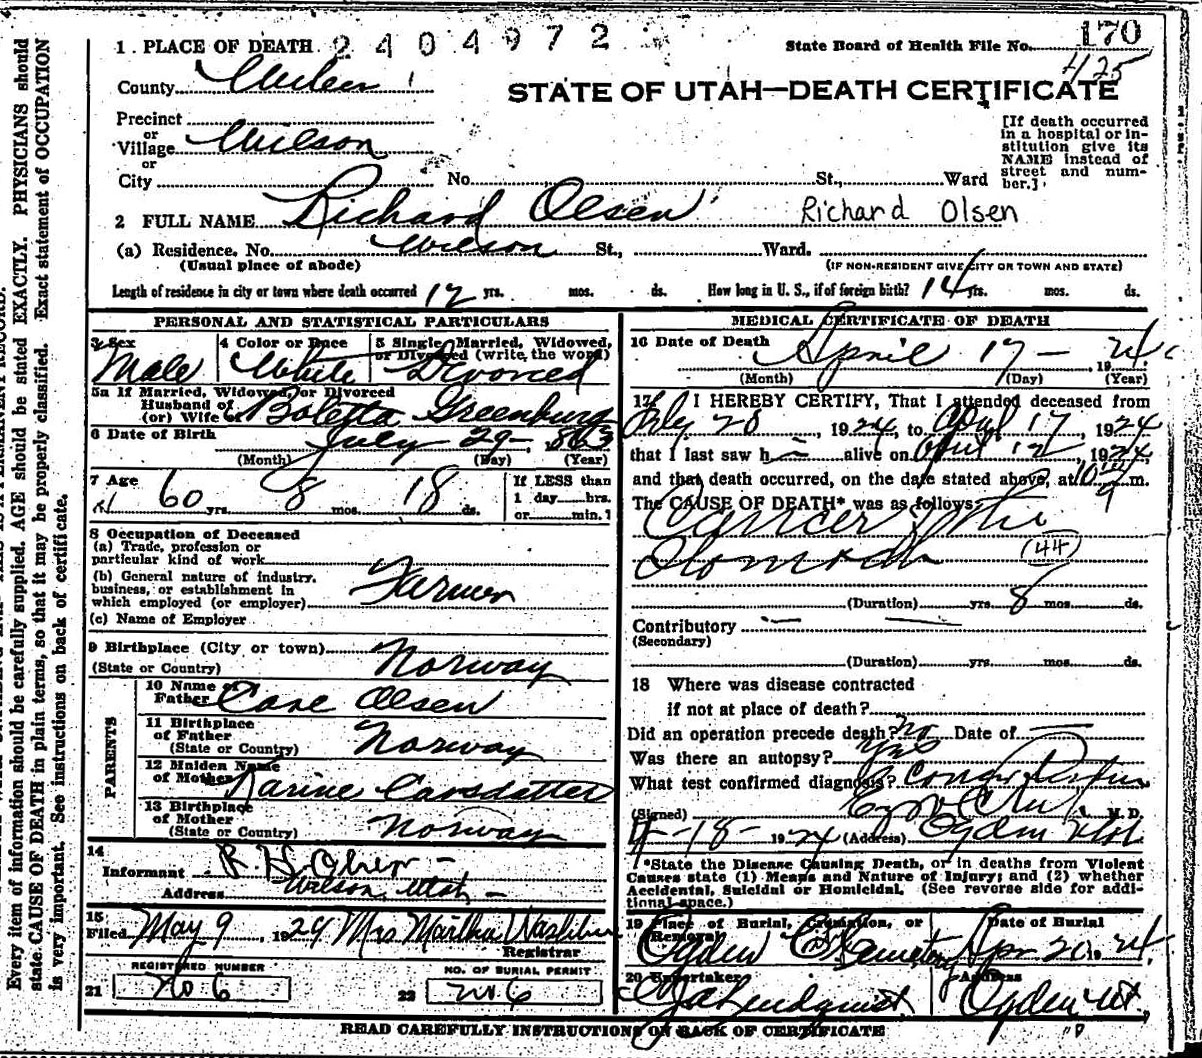 1 . PLACE OF DEATH 2404972 State Board of Health File No. 170
425
County
STATE OF UTAH—DEATH CERTIFICATE
Precinct
or
Village Wilson
or
City No. St., Ward
[If death occurred
in a hospital or in-
stitution give its
NAME instead of
street and num-
ber.]
2 FULL NAME Richard Olsen Richard Olsen
(a) Residence. No. Wilson St., Ward.
(Usual place of abode) (IF NON-RESIDENT GIVE CITY OR TOWN AND STATE)
Length of residence in city or town where death occurred 12 yrs. mos. ds. How long in U. S., if of foreign birth? 14 yrs. mos. ds.
PERSONAL AND STATISTICAL PARTICULARS
3 Sex 4 Color or Race 5 Single, Married, Widowed,
or Divorced (write the word)
Male White Divorced
5a If Married, Widowed, or Divorced
Husband of
(or) Wife of Boletta Greenburg
6 Date of Birth July 29- 1863
(Month) (Day) (Year)
7 Age 60 yrs. 8 mos. 18 ds.
If LESS than
1 day hrs.
or min.?
8 Occupation of Deceased
(a) Trade, profession or
particular kind of work
(b) General nature of industry,
business, or establishment in
which employed (or employer) Farmer
(c) Name of Employer
9 Birthplace (City or town)
(State or Country) Norway
PARENTS
10 Name of
Father Olsen
11 Birthplace
of Father
(State or Country) Norway
12 Maiden Name
of Mother Karine
13 Birthplace
of Mother
(State or Country) Norway
14
Informant R. H. Olsen -
Address Wilson, Utah -
15
Filed May 9, 1924 Mrs Martha Washburn
Registrar
REGISTERED NUMBER NO. OF BURIAL PERMIT
21 No 6 22 No 6
MEDICAL CERTIFICATE OF DEATH
16 Date of Death April 17 - 1924
(Month) (Day) (Year)
17 I HEREBY CERTIFY, That I attended deceased from
July 28, 1924, to April 17, 1924
that I last saw h alive on April 12, 1924,
and that death occurred, on the date stated above, at m.
The CAUSE OF DEATH* was as follows:
Cancer of the
Stomach (44)
(Duration) yrs. 8 mos. ds.
Contributory
(Secondary)
(Duration) yrs. mos. ds.
18 Where was disease contracted
if not at place of death?
Did an operation precede death? No Date of
Was there an autopsy?
What test confirmed diagnosis?
(Signed) M. D.
4-18-1924 (Address) Ogden Utah
*State the Disease Causing Death, or in deaths from Violent
Causes state (1) Means and Nature of Injury; and (2) whether
Accidental, Suicidal or Homicidal. (See reverse side for addi-
tional space.)
19 Place of Burial, Cremation, or
Removal Date of Burial
Ogden Cemetery Apr 20, 24
20 Undertaker Address
Lindquist Ogden Ut.
READ CAREFULLY INSTRUCTIONS ON BACK OF CERTIFICATE
Every item of information should be carefully supplied. AGE should be stated EXACTLY. PHYSICIANS should
state CAUSE OF DEATH in plain terms, so that it may be properly classified. Exact statement of OCCUPATION
is very important. See instructions on back of certificate.